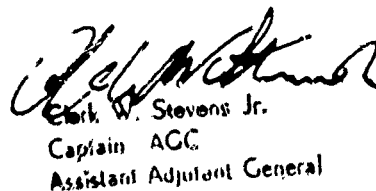 W. Stevens Jr.
Captain AGC
Assistant Adjutant General